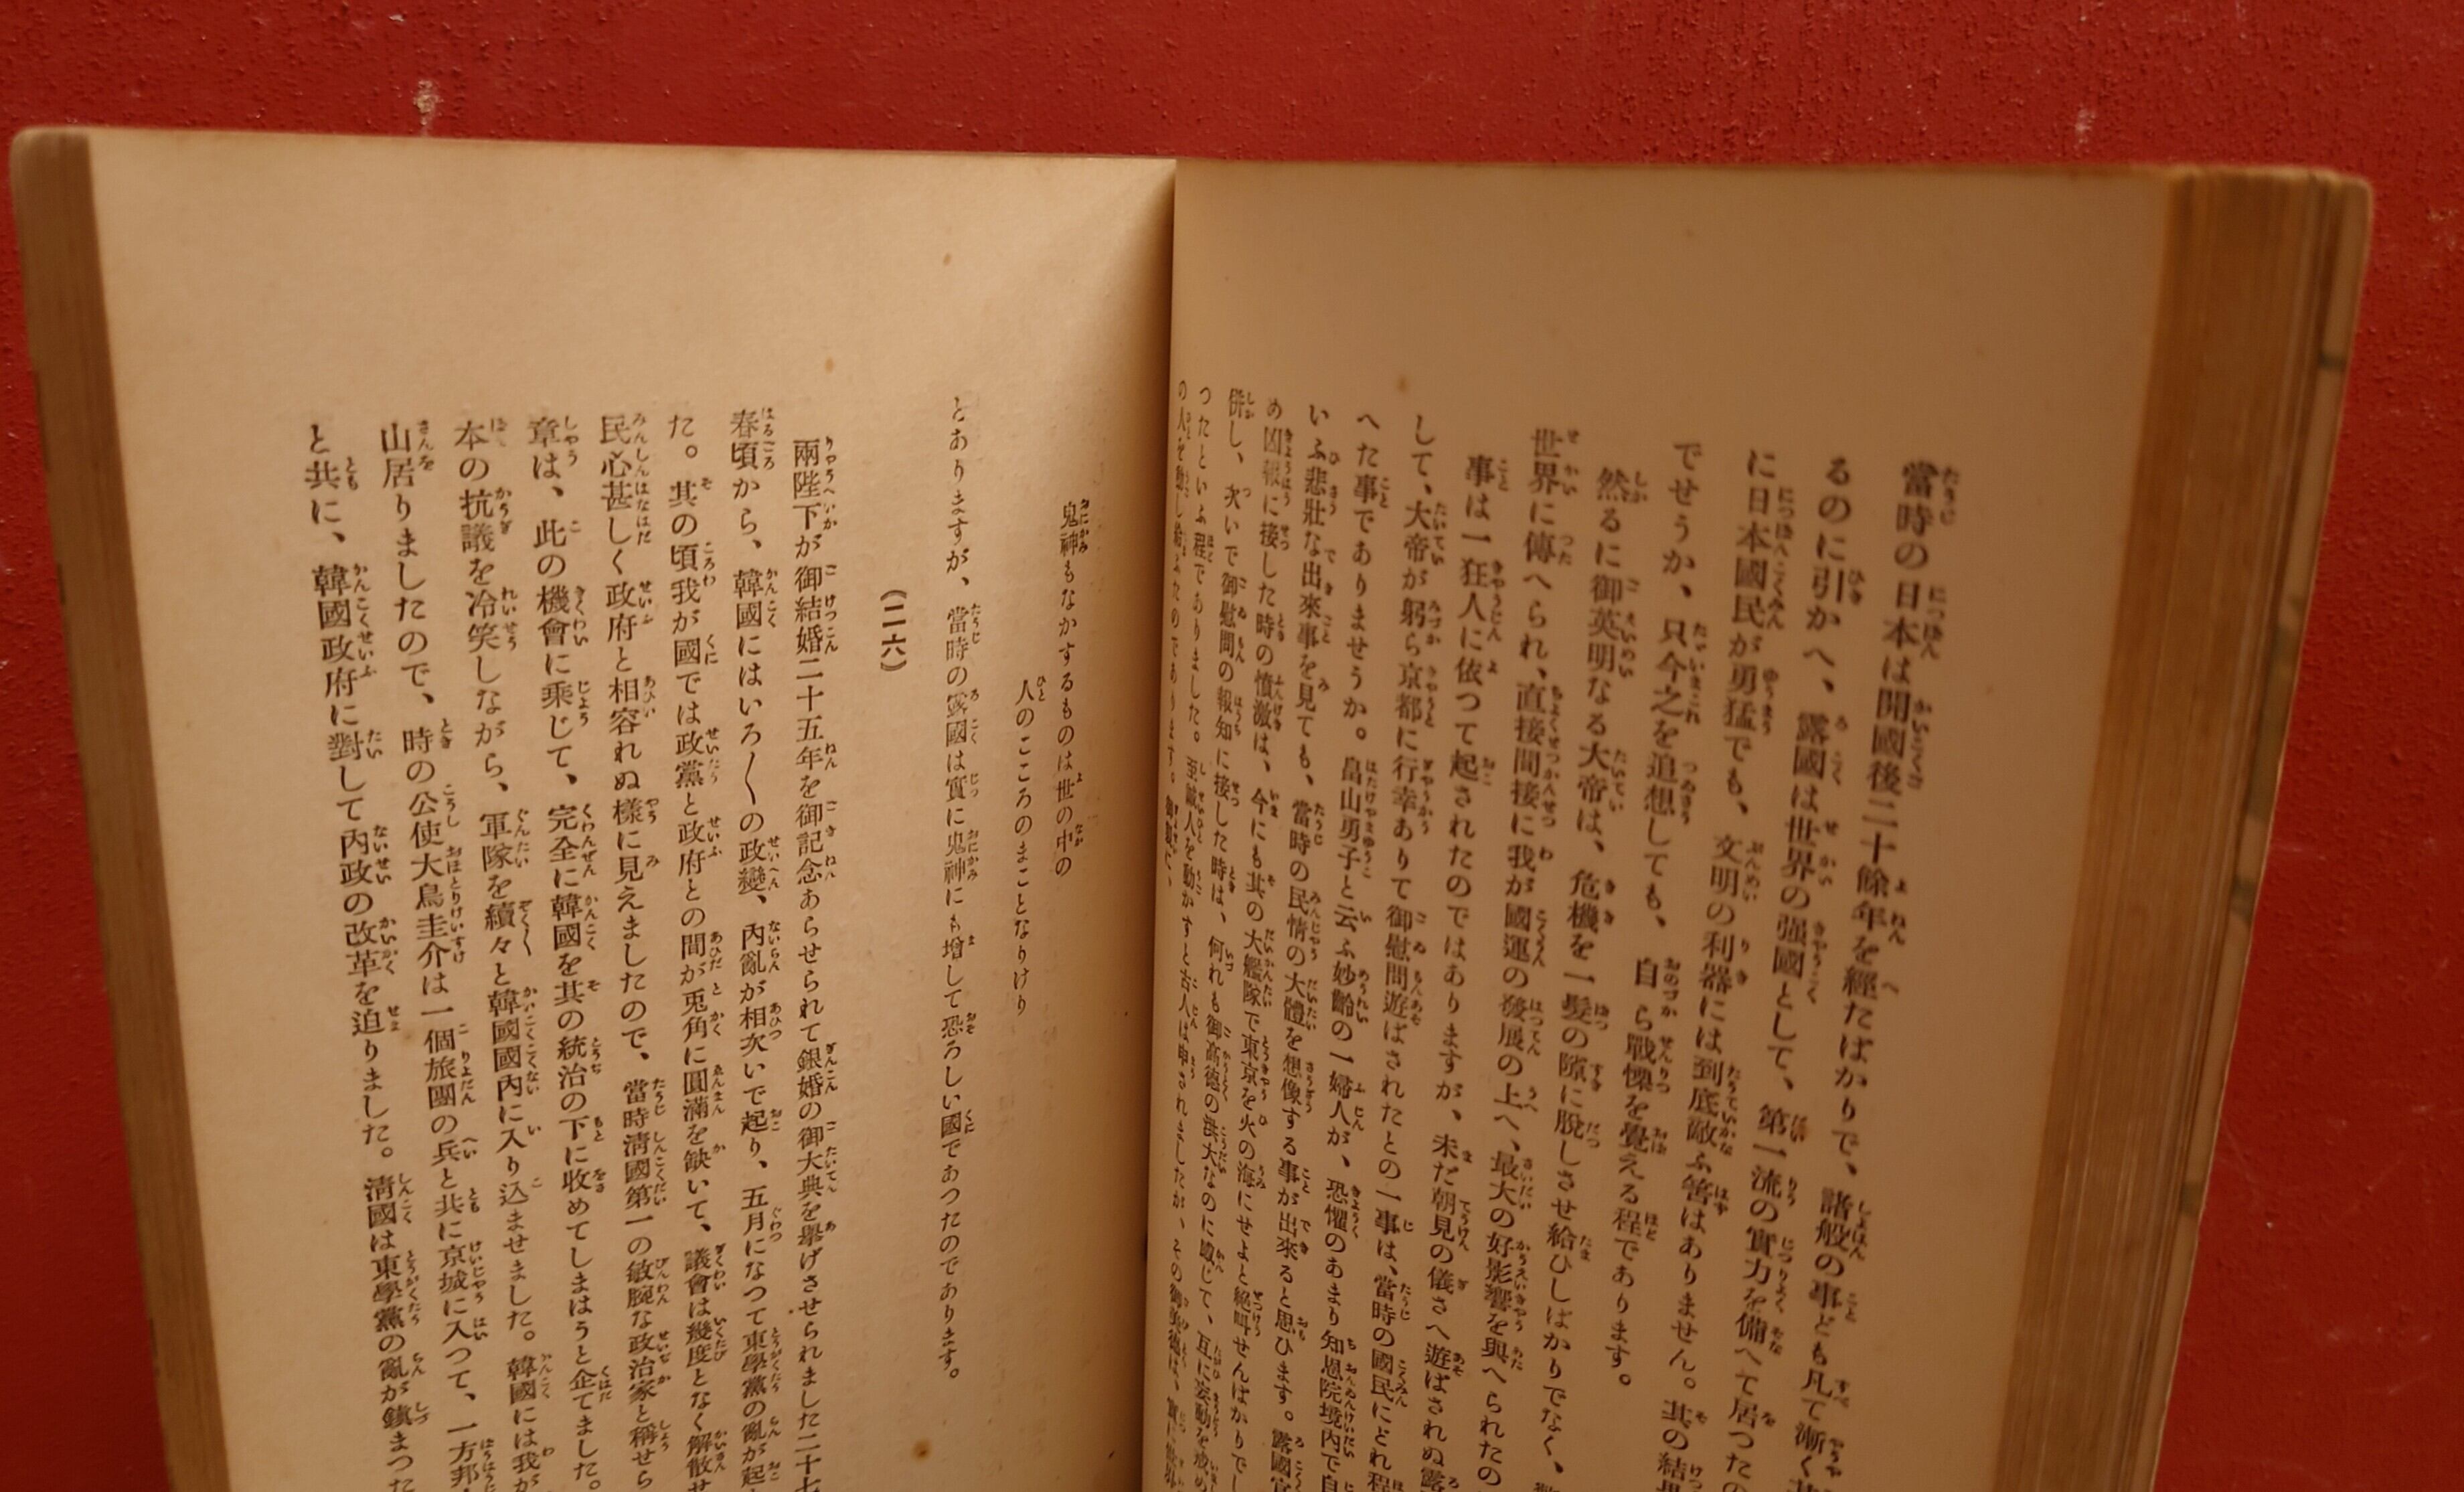 當時の日本は開國後二十餘年を經たばかりで、諸般の事ども凡て漸く
るのに引かへ、露國は世界の强國として、第一流の實力を備へて居つたの
に日本國民が勇猛でも、文明の利器には到底敵ふ筈はありません。其の結果
でせうか、只今之を追想しても、自ら戰慄を覺える程であります。
然るに御英明なる大帝は、危機を一髮の隙に脫しさせ給ひしばかりでなく、
世界に傳へられ、直接間接に我が國運の發展の上へ、最大の好影響を與へられたの
事は一狂人に依つて起されたのではありますが、未だ朝見の儀さへ遊ばされぬ露
して、大帝が躬ら京都に行幸ありて御慰問遊ばされたとの一事は、當時の國民にどれ程
へた事でありませうか。畠山勇子と云ふ妙齡の一婦人が、恐懼のあまり知恩院境內で自
いふ悲壯な出來事を見ても、當時の民情の大體を想像する事が出來ると思ひます。露國官
め凶報に接した時の憤激は、今にも其の大艦隊で東京を火の海にせよと絕叫せんばかりでし
併し、次いで御慰問の報知に接した時は、何れも御高德の洪大なのに感じて、互に
つたといふ程でありました。至誠人を動かすと古人は申されましたが、その御
の人を動し給ふたのであります。
鬼神もなかするものは世の中の
人のこころのまことなりけり
とありますが、當時の露國は實に鬼神にも增して恐ろしい國であつたのであります。
（二六）
兩陛下が御結婚二十五年を御記念あらせられて銀婚の御大典を擧げさせられました二十七
春頃から、韓國にはいろ〱の政變、內亂が相次いで起り、五月になつて東學黨の亂が起
た。其の頃我が國では政黨と政府との間が兎角に圓滿を缺いて、議會は幾度となく解散せ
民心甚しく政府と相容れぬ樣に見えましたので、當時淸國第一の敏腕な政治家と稱せら
章は、此の機會に乘じて、完全に韓國を其の統治の下に收めてしまはうと企てました。
本の抗議を冷笑しながら、軍隊を續々と韓國國內に入り込ませました。韓國には我が
山居りましたので、時の公使大鳥圭介は一個旅團の兵と共に京城に入つて、一方邦
と共に、韓國政府に對して內政の改革を迫りました。淸國は東學黨の亂が鎭まつた